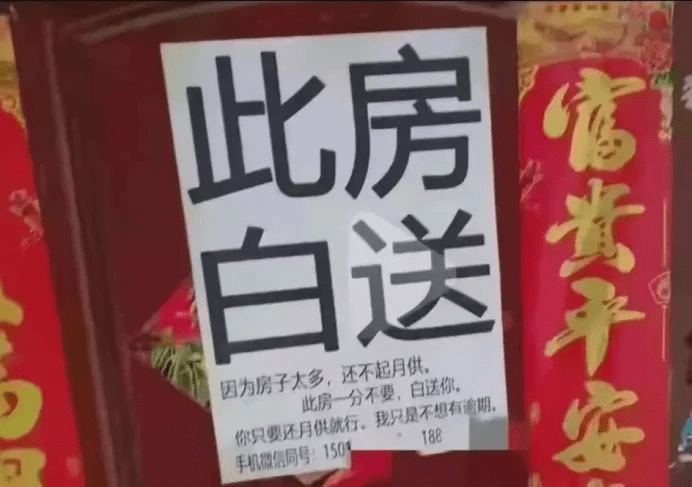 此房
白送
因为房子太多，还不起月供。
此房一分不要，白送你。
你只要还月供就行。我只是不想有逾期。
手机微信同号：150
188
富贵平安